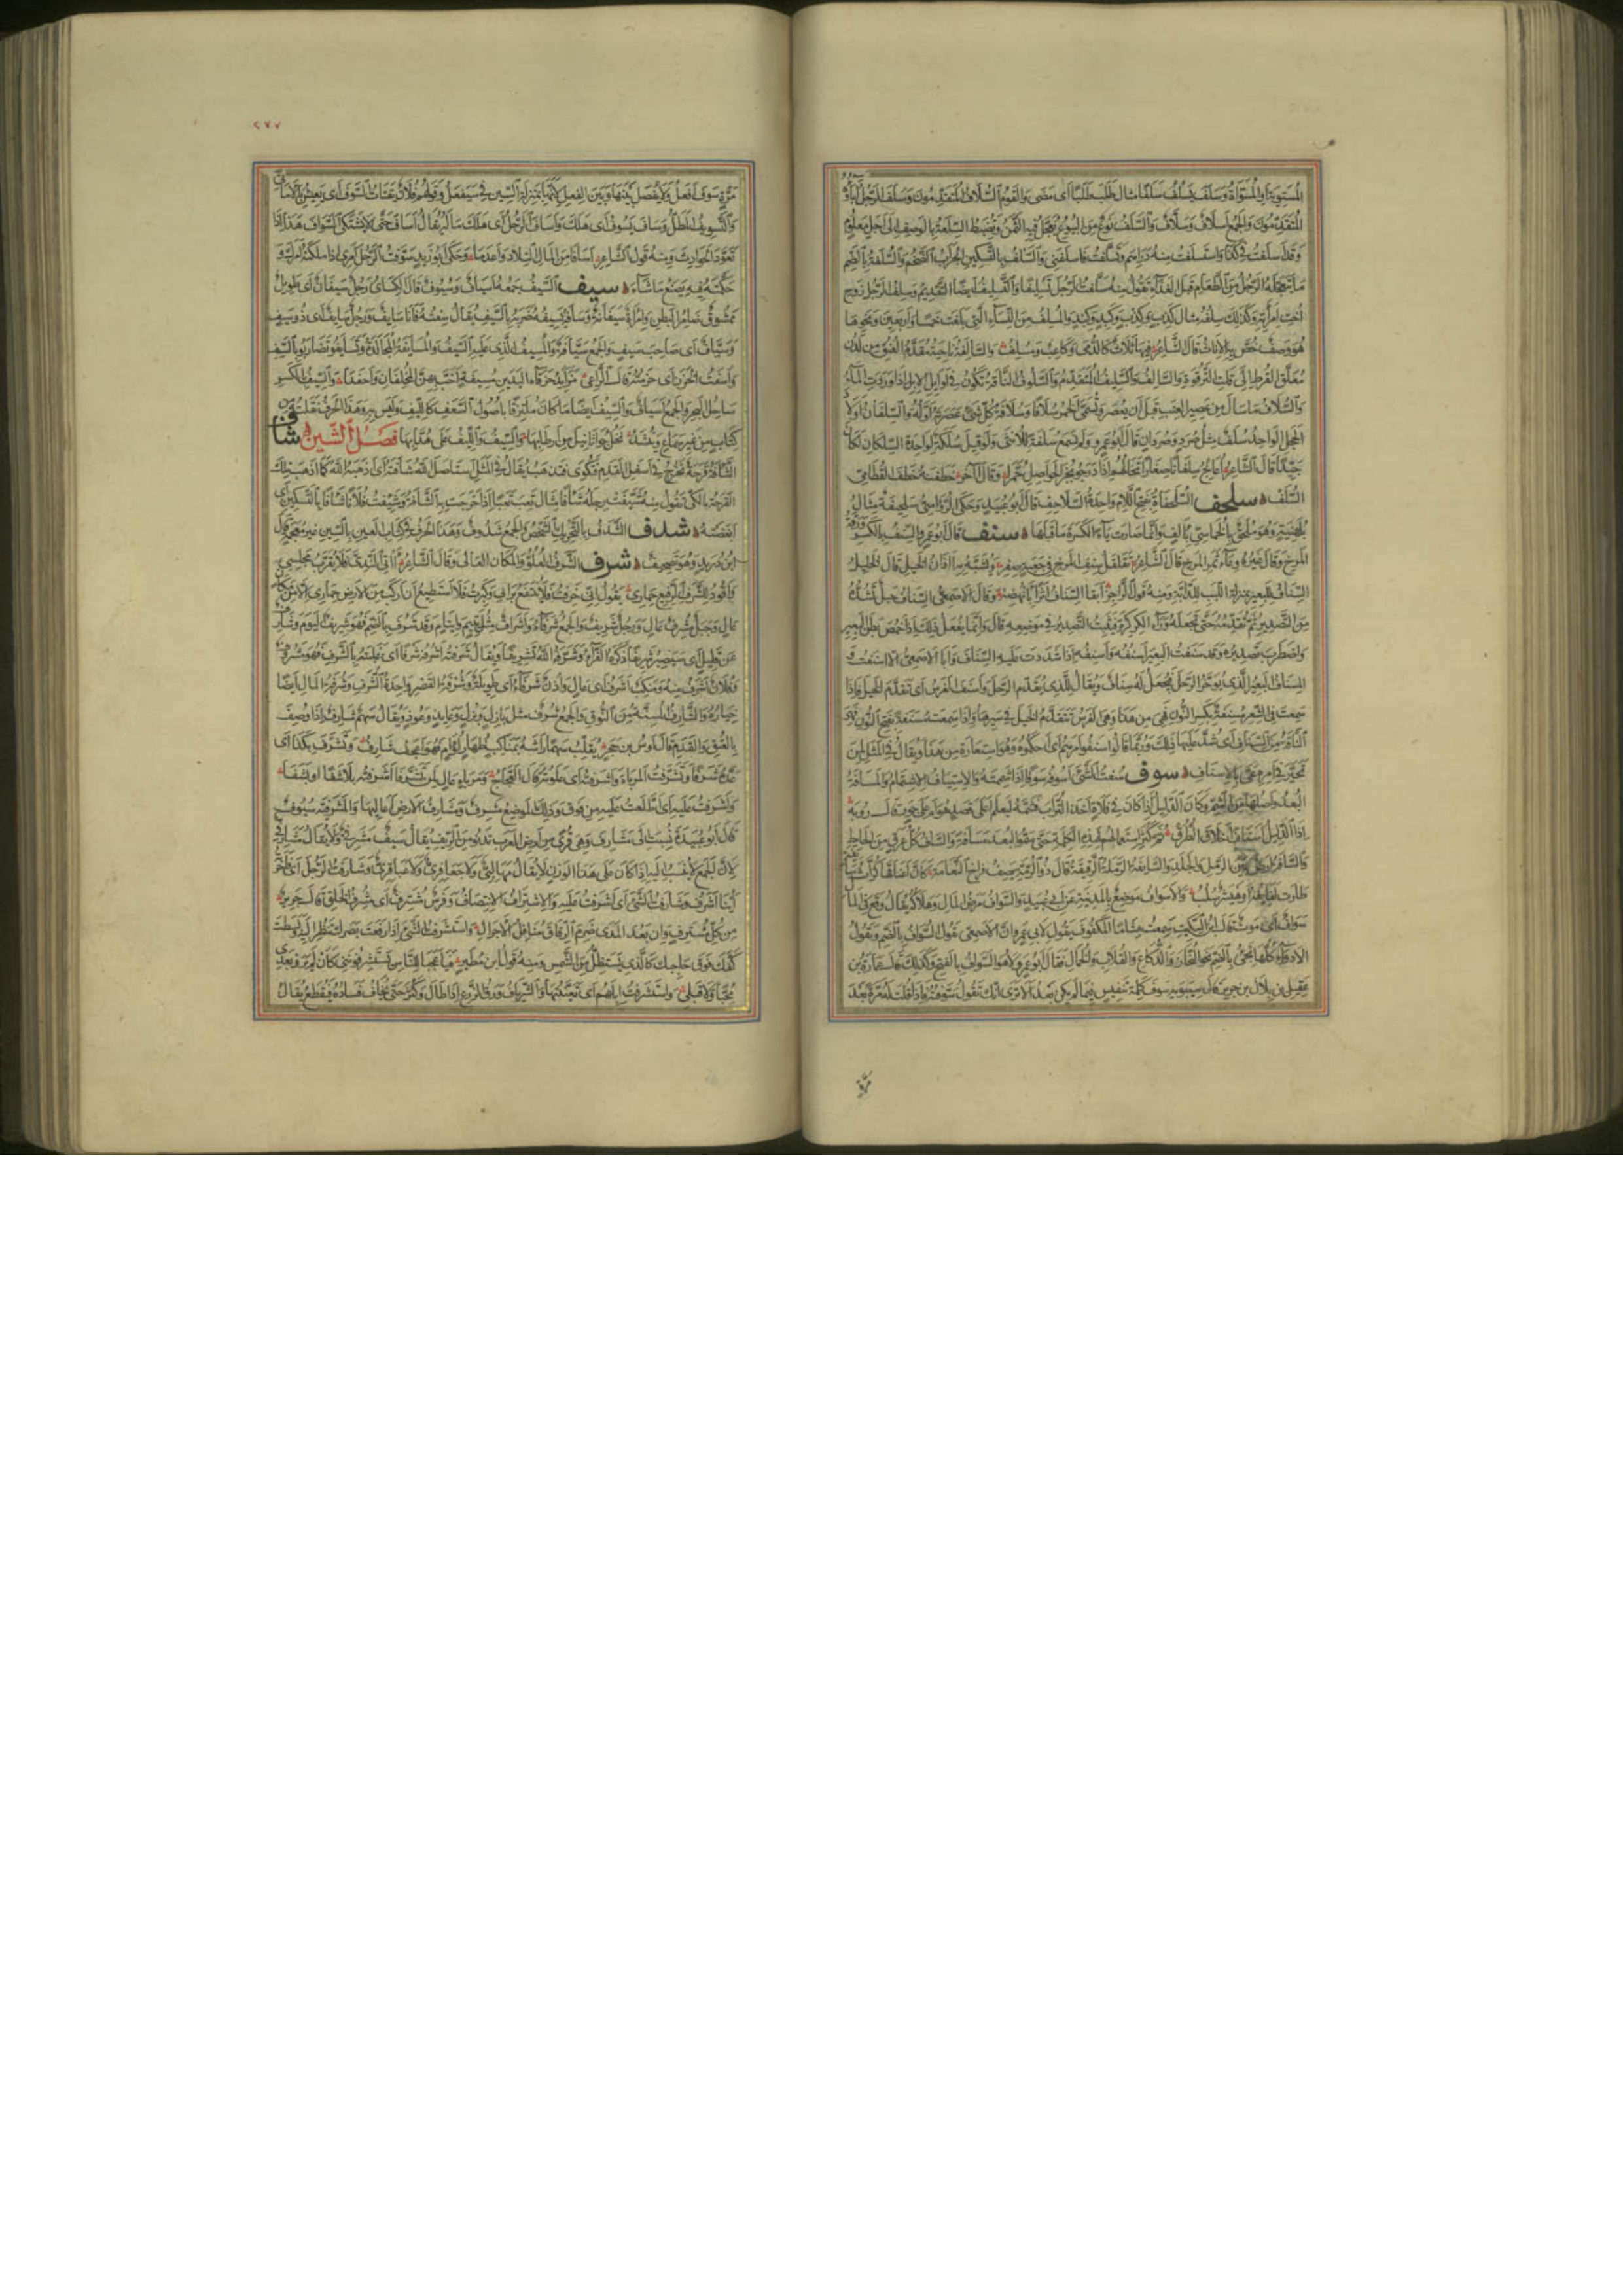 المستوية او المسواة وسلف يسلف سلفا مثال طلب يطلب طلبا اى مضى والقوم السلاف المتقدمون وسلف الرجل آباؤه
المتقدمون والجمع اسلاف وسلاف والسلف نوع من البيوع يعجل فيه الثمن وتضبط السلعة بالوصف الى اجل معلوم
وقد اسلفت فى كذا واستسلفت منه دراهم وتسلفت فاسلفنى والسلف بالتسكين الجراب الضخم والسلفة بالضم
ما يتعجله الرجل من الطعام قبل الغداء تقول منه سلفت الرجل تسليفا والتسليف ايضا التقديم وسلف الرجل زوج
اخت امرأته وكذلك سلفه مثال كذب وكذب وكبد وكبد والمسلف من النساء التى بلغت خمسا واربعين ونحوها
هو وصف خص به الاناث قال الشاعر فيها ثلاث كالدمى وكاعب ومسلف والسالفة ناحية مقدم العنق من لدن
معلق القرط الى قلت الترقوة والسالف والسليف المتقدم والسلوف الناقة تكون فى اوايل الابل اذا وردت الماء
والسلاف ما سال من عصير العنب قبل ان يعصر وتسمى الخمر سلافا وسلافة كل شئ عصرته اوله والسلفان اولاد
الحجل الواحد سلف مثل صرد وصردان قال ابو عمرو ولم نسمع سلفة للانثى ولو قيل سلفة كما قيل سلكة لواحدة السلكان لكان
جيدا قال الشاعر
السلف سلحف السلحفاة بفتح اللام واحدة السلاحف قال ابو عبيد وحكى الرؤاسى سلحفية مثال
بلهنية وهو ملحق بالخماسى بالف وانما صارت ياء للكسرة ما قبلها سنف قال ابو عمرو السنف بالكسر ورقة
المرخ وقال غيره وعاء ثمر المرخ قال الشاعر تقلقل سنف المرخ فى جعبة صفر وتشبه به آذان الخيل قال الخليل
السناف للبعير بمنزلة اللبب للدابة ومنه قول الراجز وقال الاصمعى السناف حبل تشده
من التصدير ثم تقدمه حتى تجعله وراء الكركرة فيثبت التصدير فى موضعه قال وانما يفعل ذلك اذا خمص بطن البعير
واضطرب تصديره وقد سنفت البعير اسنفه واسنفه اذا شددت عليه السناف وابا الاصمعى الا اسنفت و
المسناف البعير الذى يؤخر الرحل فيجعل له سناف ويقال للذى يقدم الرحل واسنف الفرس اى تقدم الخيل فاذا
سمعت فى الشعر مسنفة بكسر النون فهى من هذا وهى الفرس تتقدم الخيل فى سيرها واذا سمعت مسنفة بفتح النون فهى
الناقة من السناف اى شد عليها ذلك وربما قالوا اسنفوا امرهم اى احكموه وهو استعارة من هذا ويقال فى المثل لمن
تحير فى امره عى بالاسناف سوف سفت الشئ اسوفه سوفا اذا شممته والاستياف الاشتمام والمسافة
البعد واصلها من الشم وكان الدليل اذا كان فى فلاة اخذ التراب فشمه ليعلم اعلى قصد هو ام على جور قال رؤبة
اذا الدليل استاف اخلاق الطرق ثم كثر استعمالهم لهذه الكلمة حتى سموا البعد مسافة والساف كل عرق من الحائط
والسائفة من الرمل الجلد والسائفة الرملة الرقيقة قال ذو الرمة يصف فراخ النعامة كان اعناقها كراث سائفة
طارت لفايفه او هيشر سلب والاسواف موضع بالمدينة عن ابى عبيد والسواف مرض المال وهلاكه يقال وقع فى المال
سواف اى موت قال ابن السكيت سمعت هشاما المكفوف يقول لابى عمرو ان الاصمعى يقول السواف بالضم ويقول
الادواء كلها تجئ بالضم نحو النحاز والدكاع والقلاب والخمال فقال ابو عمرو لا هو السواف بالفتح وكذلك قال عمارة بن
عقيل بن بلال بن جرير قال سيبويه سوف كلمة تنفيس فيما لم يكن بعد الا ترى انك تقول سوفته اذا قلت له مرة بعد
مرة
٢٧٧
مرة سوف افعل ولا يفصل بينها وبين الفعل لانها بمنزلة السين فى سيفعل وقولهم فلان يقتات السوف اى يعيش بالامانى
والتسويف المطل وساف يسوف اى هلك واساف الرجل اى هلك ماله يقال اساف حتى لا يشتكى السواف هذا اذا
تعود الحوادث ومنه قول الشاعر اسافا من المال التلاد واعدما وحكى ابو زيد سوفت الرجل امرى اذا ملكته امرك و
حكمته فيه يصنع ما شاء سيف السيف جمعه اسياف وسيوف قال الكسائى رجل سيفان اى طويل
ممشوق ضامر البطن وامرأة سيفانة وسافه يسيفه ضربه بالسيف يقال سفته فانا سايف ورجل سايف اى ذو سيف
وسياف اى صاحب سيف والجمع سيافة والمسيف الذى عليه السيف والمسايفة المجالدة وتسايفوا تضاربوا بالسيف
واسفت الخرز اى خرمته قال الراعى مزائد خرقاء اليدين مسيفة اخب بهن المخلفان واحفدا والسيف بالكسر
ساحل البحر والجمع اسياف والسيف ايضا ما كان ملتزقا باصول السعف كالليف وليس به وهذا الحرف نقلته من
كتاب من غير سماع وينشد والسيف والليف على هدابها فصل الشين شأف
الشأفة قرحة تخرج فى اسفل القدم فتكوى فتذهب يقال فى المثل استاصل الله شأفته اى اذهبه الله كما اذهب تلك
القرحة بالكى تقول منه شئفت رجله شأفا مثال تعب تعبا اذا خرجت بها الشأفة وشئفت فلانا شأفا بالتسكين اى
ابغضته شدف الشدف بالتحريك الشخص والجمع شدوف وهذا الحرف فى كتاب العين بالسين غير معجمة قال
ابن دريد وهو تصحيف شرف الشرف العلو والمكان العالى وقال الشاعر آتى الندى فلا يقرب مجلسى
واقود للشرف الرفيع حمارى يقول انى خرفت فلا ينتفع برايى وكبرت فلا استطيع ان اركب من الارض حمارى الا من مكان
عال وجبل مشرف عال ورجل شريف والجمع شرفاء واشراف مثل يتيم وايتام وقد شرف بالضم فهو شريف اليوم وشارف
عن قليل اى سيصير شريفا ذكره الفراء وشرفه الله تشريفا ويقال شرفته اشرفه شرفا اى غلبته بالشرف فهو مشروف
وفلان اشرف منه ومنكب اشرف اى عال واذن شرفاء اى طويلة وشرفة القصر واحدة الشرف وشرفة المال ايضا
خياره والشارف المسنة من النوق والجمع شرف مثل بازل وبزل وعايذ وعوذ ويقال سهم شارف اذا وصف
بالعتق والقدم قال اوس بن حجر يقلب سهما راشه بمناكب ظهار لؤام فهو اعجف شارف وتشرف بكذا اى
عده شرفا وتشرفت المرباء واشرفته اى علوته قال العجاج ومرباء عال لمن تشرفا اشرفته بلا شفا او بشفا
واشرفت عليه اى اطلعت عليه من فوق وذلك الموضع مشرف ومشارف الارض اعاليها والمشرفية سيوف
قال ابو عبيدة نسبت الى مشارف وهى قرى من ارض العرب تدنو من الريف يقال سيف مشرفى ولا يقال مشارفى
لان الجمع لا ينسب اليه اذا كان على هذا الوزن لا يقال مهالبى ولا جعافرى ولا عباقرى وشارفت الرجل اى فاخرته
اينا اشرف وشارفت الشئ اى اشرفت عليه والاشتراف الانتصاب وفرس مشترف اى مشرف الخلق قال جرير
من كل مشترف وان بعد المدى ضرم الرقاق مناقل الاجرال واستشرفت الشئ اذا رفعت بصرك تنظر اليه وبسطت
كفك فوق حاجبك كالذى يستظل من الشمس ومنه قول ابن مطير فيا عجبا للناس يستشرفوننى كان لم يروا بعدى
محبا ولا قبلى واستشرفت ابلهم اى تعينتها والشرياف ورق الزرع اذا طال وكثر حتى يخاف فساده فيقطع يقال